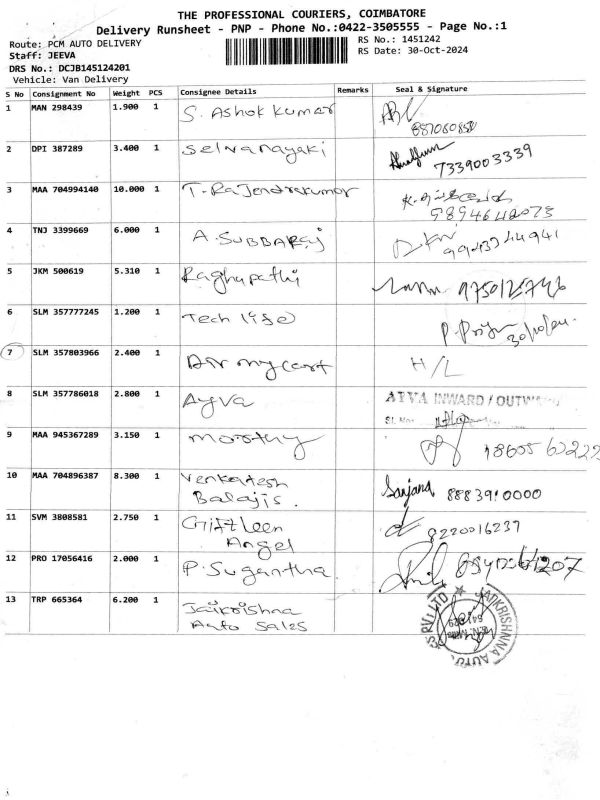 THE PROFESSIONAL COURIERS, COIMBATORE
Delivery Runsheet - PNP - Phone No.:0422-3505555 - Page No.:1
Route: PCM AUTO DELIVERY
RS No.: 1451242
Staff: JEEVA
RS Date: 30-Oct-2024
DRS No.: DCJB145124201
Vehicle: Van Delivery
S No Consignment No Weight PCS Consignee Details Remarks Seal & Signature
1 MAN 298439 1.900 1 S. Ashok Kumar
2 DPI 387289 3.400 1 Selvanayaki 7339003339
3 MAA 704994140 10.000 1 T. Rajendrakumar
4 TNJ 3399669 6.000 1 A. SUBBARAJ
5 JKM 500619 5.310 1 Raghupathi
6 SLM 357777245 1.200 1 Tech life
7 SLM 357803966 2.400 1 Air my cart H/L
8 SLM 357786018 2.800 1 Ayva AYVA INWARD / OUTWA
Sl. No.
9 MAA 945367289 3.150 1 moorthy
10 MAA 704896387 8.300 1 Venkatesh Sanjana 8883910000
Balajis.
11 SVM 3808581 2.750 1 Giftleen 8220016237
Angel
12 PRO 17056416 2.000 1 P. Sugantha
13 TRP 665364 6.200 1 Jaikrishna
Auto Sales
JAIKRISHNA AUTO